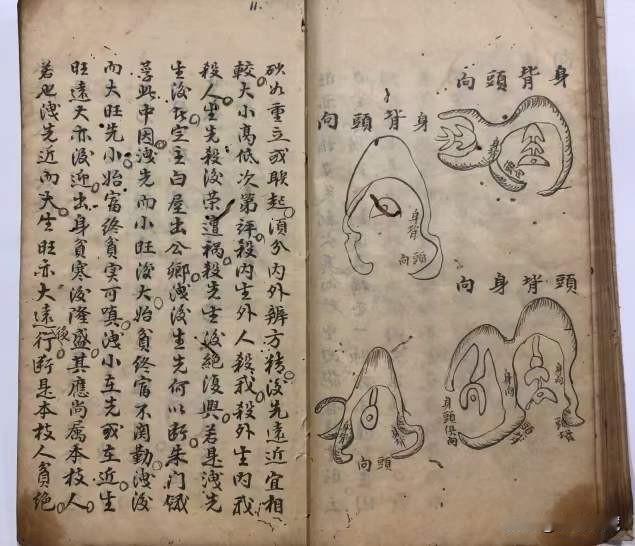 身背頭向
身背頭向
身背
頭向
頭身向
身向
頭向
重立或联起須分內外辨方後先遠近宜相
較大小高低次第詳殺內生外人殺我殺外生內我
殺人生先殺後榮遭禍殺先生後絕復興若是洩先
生後主白屋出公卿洩後生先何以断朱门餓
莩此中因洩先而小旺後大始貧終富不関勤洩後
而大旺先小始富終貧実可嗔洩小在先或在近生
旺遠大亦後迎出身貧寒後隆盛其應尚属本枝人
若也洩先近而大生旺亦大遠後行断是本枝人貧絶